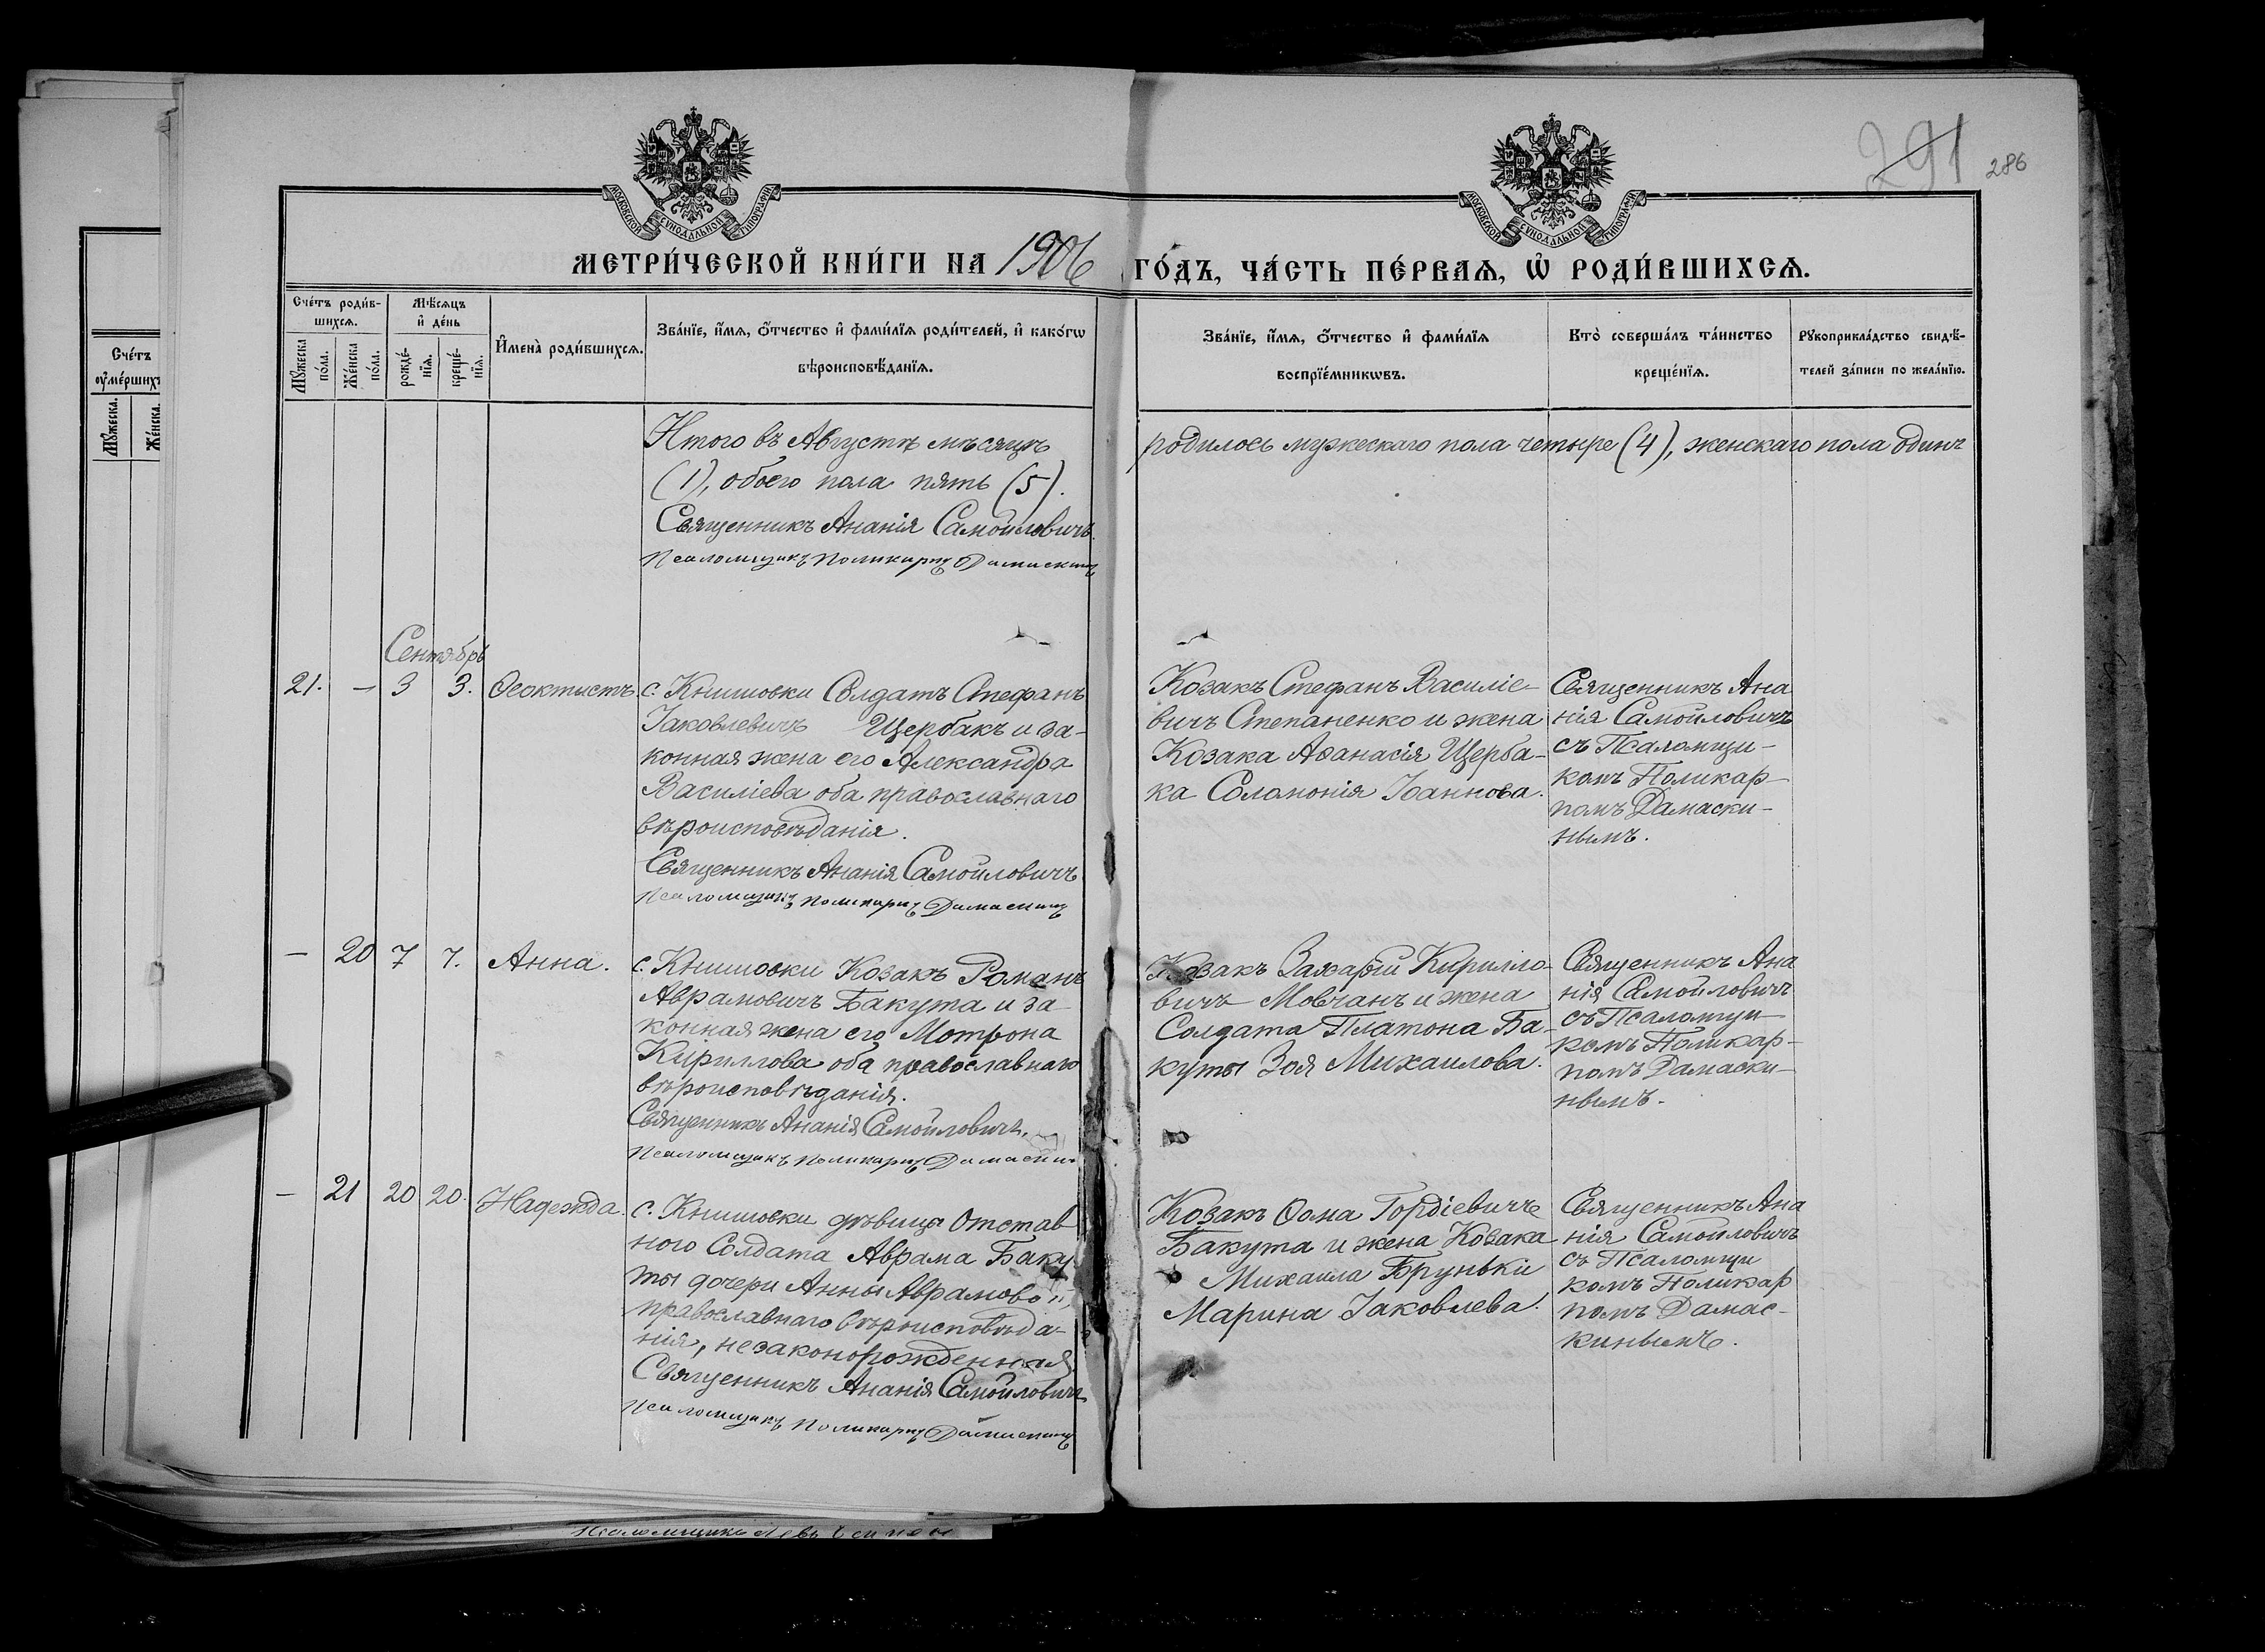 291 286
МОСКОВСКОЙ СѴНОДАЛЬНОЙ ТИПОГРАФІИ
МОСКОВСКОЙ СѴНОДАЛЬНОЙ ТИПОГРАФІИ
МЕТРИ́ЧЕСКОЙ КНИ́ГИ НА 1906 ГО́ДЪ, ЧА́СТЬ ПЕ́РВАѦ, Ѡ҆ РОДИ́ВШИХСѦ.
Сче́тъ роди́в-
шихсѧ.
Мѣ́сѧцъ
и҆ де́нь
Мꙋ́жеска
по́ла.
Же́нска
по́ла.
рожде́-
нїѧ.
креще́-
нїѧ.
И҆мена̀ роди́вшихсѧ.
Зва́нїе, и҆́мѧ, ѻ҆́тчество и҆ фами́лїѧ роди́телей, и҆ како́гѡ
вѣроисповѣ́данїѧ.
Зва́нїе, и҆́мѧ, ѻ҆́тчество и҆ фами́лїѧ
воспрїе́мникѡвъ.
Кто̀ соверша́лъ та́инство
креще́нїѧ.
Рꙋкоприкла́дство свидѣ́-
телей за́писи по жела́нїю.
Сче́тъ
ᲂу҆ме́ршихъ
Мꙋ́жеска.
Же́нска.
Итого въ Августѣ мѣсяцѣ родилось мужескаго пола четыре (4), женскаго пола одинъ
(1), обоего пола пять (5).
Священникъ Ананія Самойловичъ.
Псаломщикъ Поликарпъ Дамаскинъ
Сентябрь
21. — 3 3. Ѳеоктистъ
с. Книшовки Солдатъ Стефанъ
Іаковлевичъ Щербакъ и за-
конная жена его Александра
Василіева оба православнаго
вѣроисповѣданія.
Священникъ Ананія Самойловичъ
Псаломщикъ Поликарпъ Дамаскинъ
Козакъ Стефанъ Василіе-
вичъ Степаненко и жена
Козака Аѳанасія Щерба-
ка Соломонія Іоаннова.
Священникъ Ана
нія Самойловичъ
съ Псаломщи-
комъ Поликар-
помъ Дамаски-
нымъ.
— 20 7 7. Анна.
с. Книшовки Козакъ Романъ
Аврамовичъ Бакута и за-
конная жена его Мотрона
Кириллова оба православнаго
вѣроисповѣданія.
Священникъ Ананія Самойловичъ.
Псаломщикъ Поликарпъ Дамаскинъ
Козакъ Захарій Кирилло-
вичъ Мовчанъ и жена
Солдата Платона Ба-
куты Зоя Михаилова.
Священникъ Ана
нія Самойловичъ
съ Псаломщи-
комъ Поликар-
помъ Дамаски-
нымъ.
— 21 20 20. Надежда.
с. Книшовки дѣвицы Отстав
ного Солдата Аврама Баку
ты дочери Анны Аврамовой,
православнаго вѣроисповѣда-
нія, незаконорожденная
Священникъ Ананія Самойловичъ
Псаломщикъ Поликарпъ Дамаскинъ
Козакъ Ѳома Гордіевичъ
Бакута и жена Козака
Михаила Бруньки
Марина Іаковлева.
Священникъ Ана
нія Самойловичъ
съ Псаломщи
комъ Поликар
помъ Дамас-
кинымъ.
Псаломщикъ